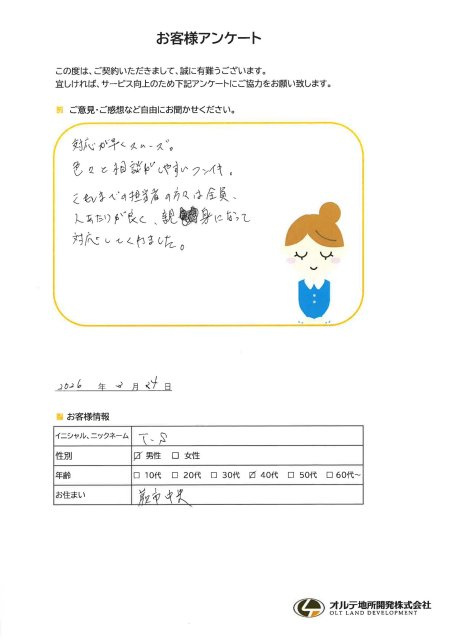 お客様アンケート
この度は、ご契約いただきまして、誠に有難うございます。
宜しければ、サービス向上のため下記アンケートにご協力をお願い致します。
ご意見・ご感想など自由にお聞かせください。
対応が早くスムーズ。
色々と相談がしやすいフンイキ。
くもじまべの担当者の方々は全員、
人あたりが良く、親身になって
対応してくれました。
2026 年 2 月 24 日
お客様情報
イニシャル、ニックネーム T.S
性別 ☑ 男性 □ 女性
年齢 □ 10代 □ 20代 □ 30代 ☑ 40代 □ 50代 □ 60代〜
お住まい 市中央
オルテ地所開発株式会社
OLT LAND DEVELOPMENT